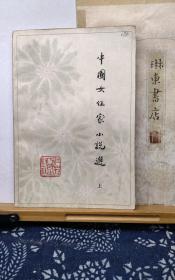 中國女作家小說選
上
琳東書店